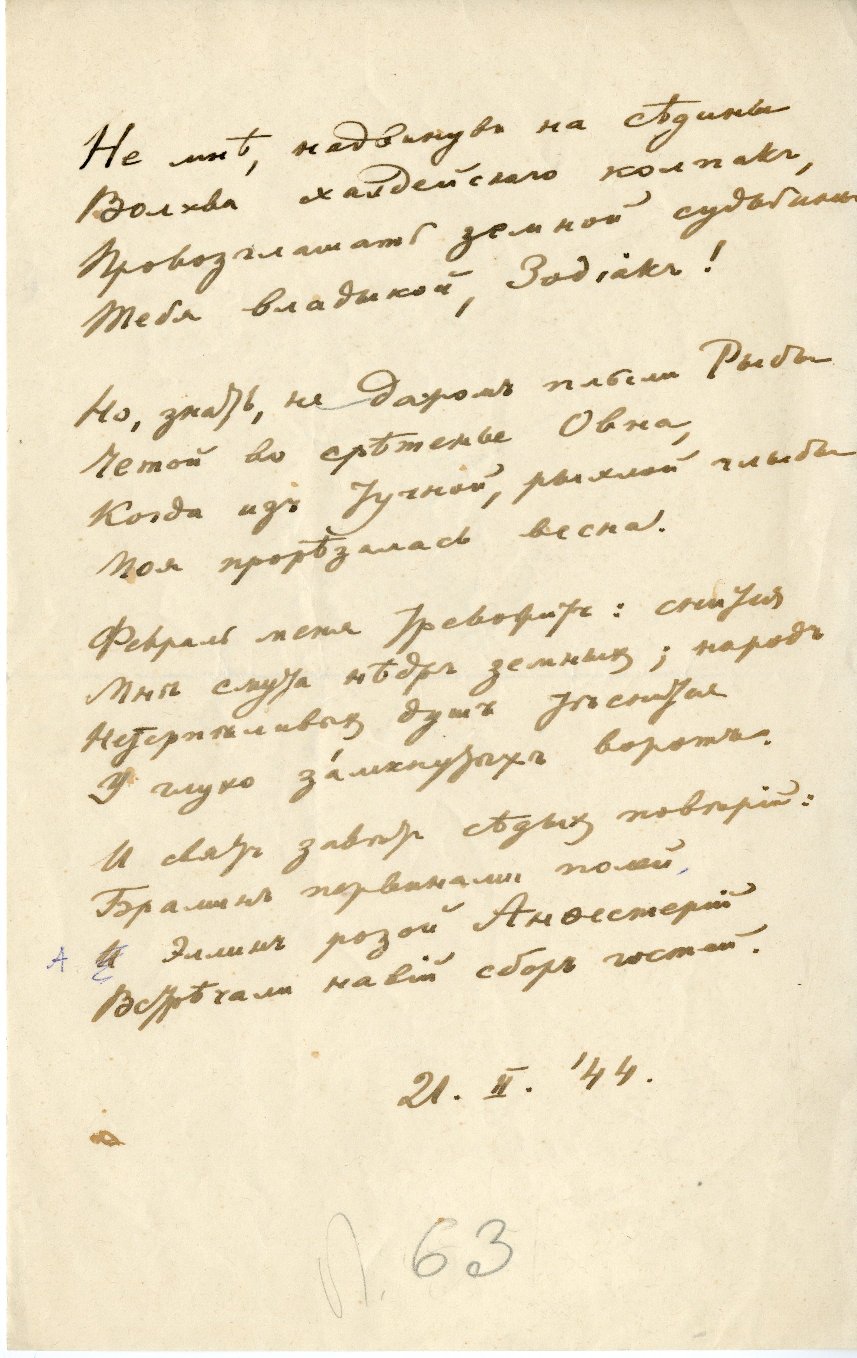 Не мнѣ, надвинувъ на сѣдины
Волхва халдейскаго колпакъ,
Провозглашать земной судьбины
Тебя владыкой, Зодіакъ!
Но, знать, не даромъ плыли Рыбы
Четой во срѣтенье Овна,
Когда изъ тучной, рыхлой глыбы
Моя прорѣзалась весна.
Февраль меня тревожитъ: снится
Мнѣ смута нѣдръ земныхъ; народъ
Нетерпѣливыхъ душъ тѣснится
У глухо за́мкнутыхъ воротъ.
И святъ завѣтъ сѣдыхъ повѣрій:
Браминъ первинами полей,
А И Эллинъ розой Анѳестерій
Встрѣчали навій сборъ гостей.
21. II. '44.
Л. 63